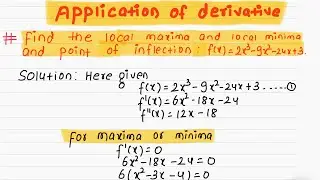 Application of derivative
# Find the local maxima and local minima
and point of inflection: f(x)=2x³-9x²-24x+3.
Solution: Here given
f(x)=2x³-9x²-24x+3 ..... ①
f'(x)=6x²-18x-24
f''(x)=12x-18
for maxima or minima
f'(x)=0
6x²-18x-24=0
6(x²-3x-4)=0